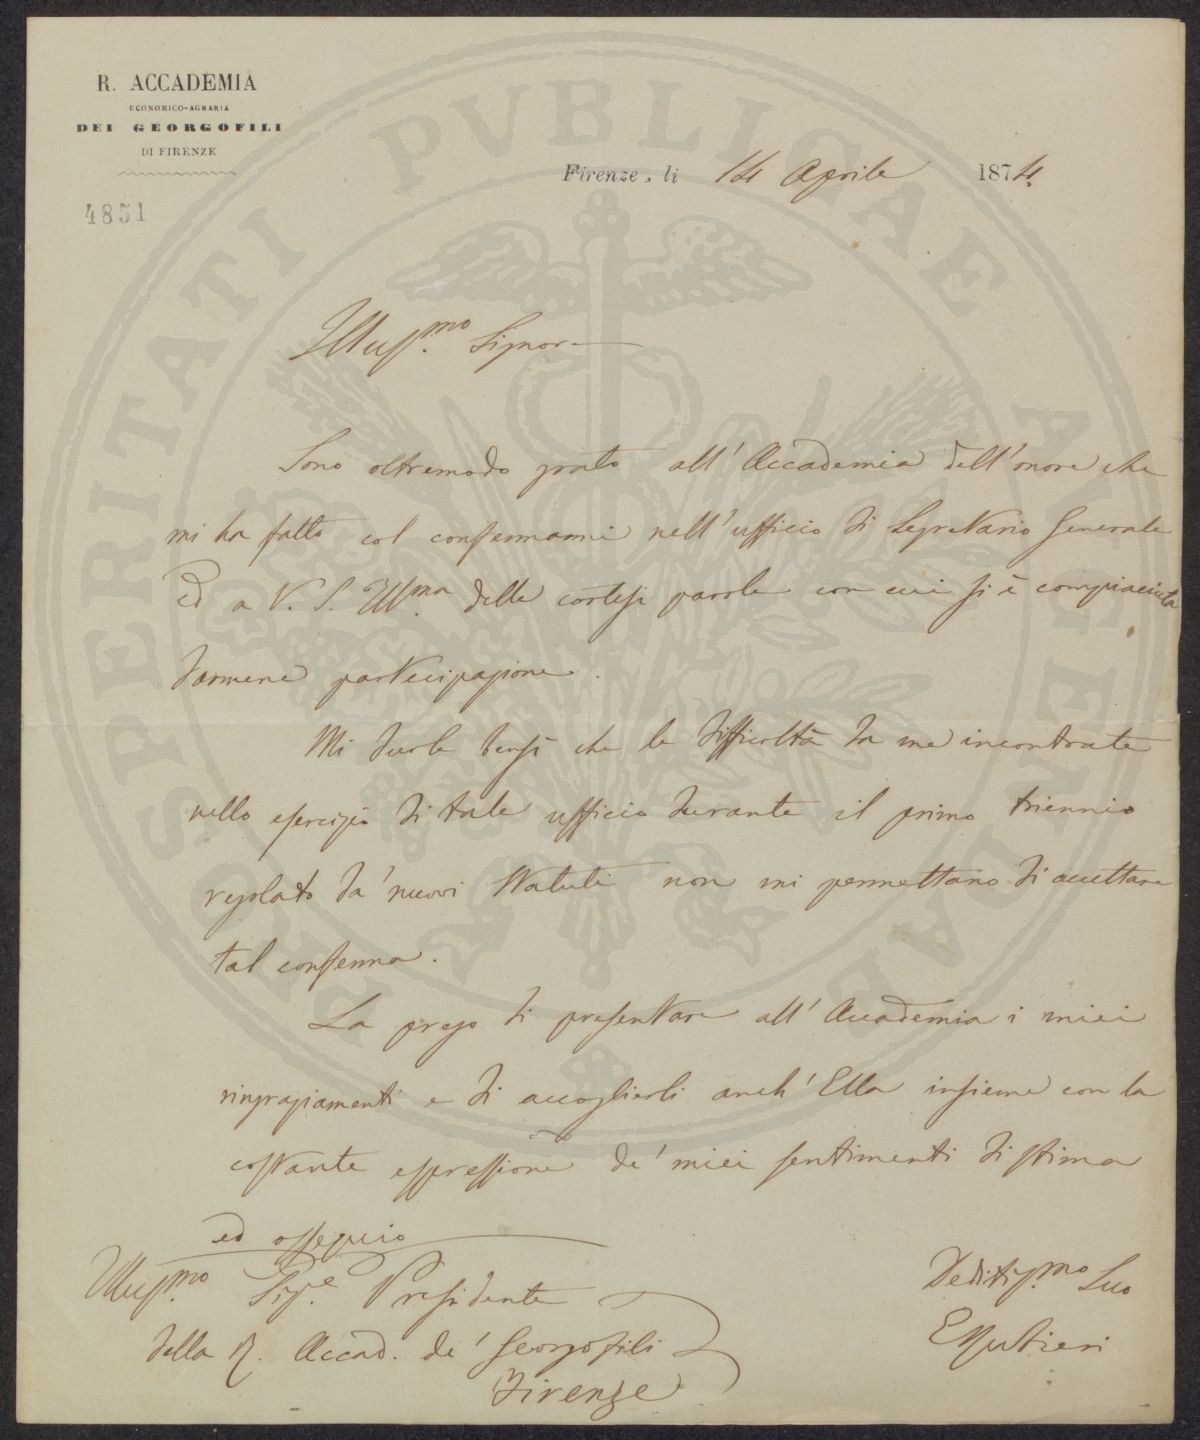 R. ACCADEMIA
ECONOMICO-AGRARIA
DEI GEORGOFILI
DI FIRENZE
Firenze, li 14 Aprile 1874.
4851
PROSPERITATI PVBLICAE AVGENDAE
Illus.mo Signore
Sono oltremodo grato all'Accademia dell'onore che
mi ha fatto col confermarmi nell'ufficio di Segretario Generale
ed a V. S. Ill.ma delle cortesi parole con cui si è compiaciuta
darmene partecipazione.
Mi duole bensì che le difficoltà da me incontrate
nello esercizio di tale ufficio durante il primo triennio
regolato da' nuovi Statuti non mi permettano di accettare
tal conferma.
La prego di presentare all'Accademia i miei
ringraziamenti e di accoglierli anch'Ella insieme con la
costante espressione de' miei sentimenti di stima
ed ossequio
Illus.mo Sig.e Presidente
della R. Accad. de' Georgofili
Firenze
Deditis.mo Suo